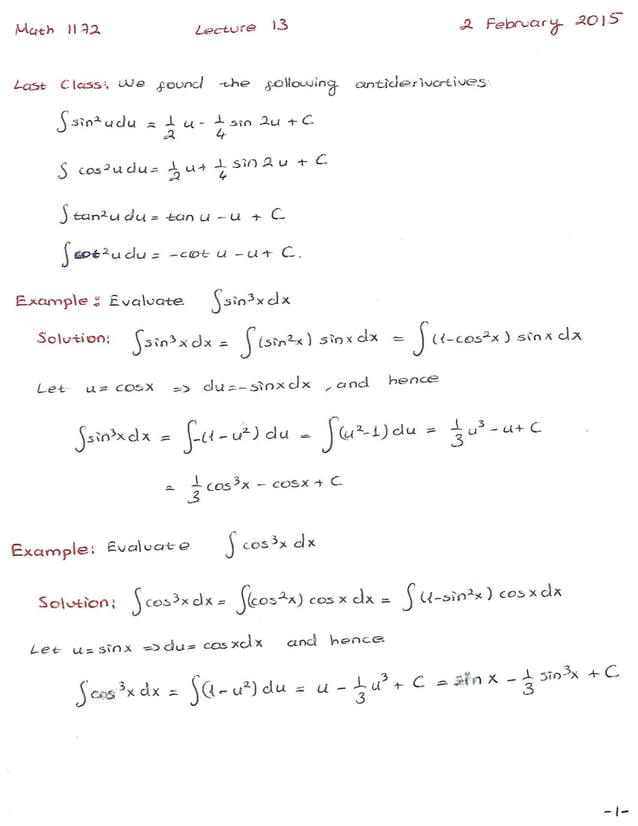 Math 1172 Lecture 13 2 February 2015
Last Class: We found the following antiderivatives:
∫sin²u du = 1/2 u - 1/4 sin 2u + C
∫ cos²u du = 1/2 u + 1/4 sin 2u + C
∫tan²u du = tan u - u + C
∫cot²u du = -cot u - u + C.
Example: Evaluate ∫sin³x dx
Solution: ∫sin³x dx = ∫(sin²x) sinx dx = ∫(1-cos²x) sinx dx
Let u = cosx => du = -sinx dx, and hence
∫sin³x dx = ∫-(1-u²) du = ∫(u²-1) du = 1/3 u³ - u + C
= 1/3 cos³x - cosx + C
Example: Evaluate ∫cos³x dx
Solution: ∫cos³x dx = ∫(cos²x) cosx dx = ∫(1-sin²x) cosx dx
Let u = sinx => du = cosx dx and hence
∫cos³x dx = ∫(1-u²) du = u - 1/3 u³ + C = sin x - 1/3 sin³x + C
-1-